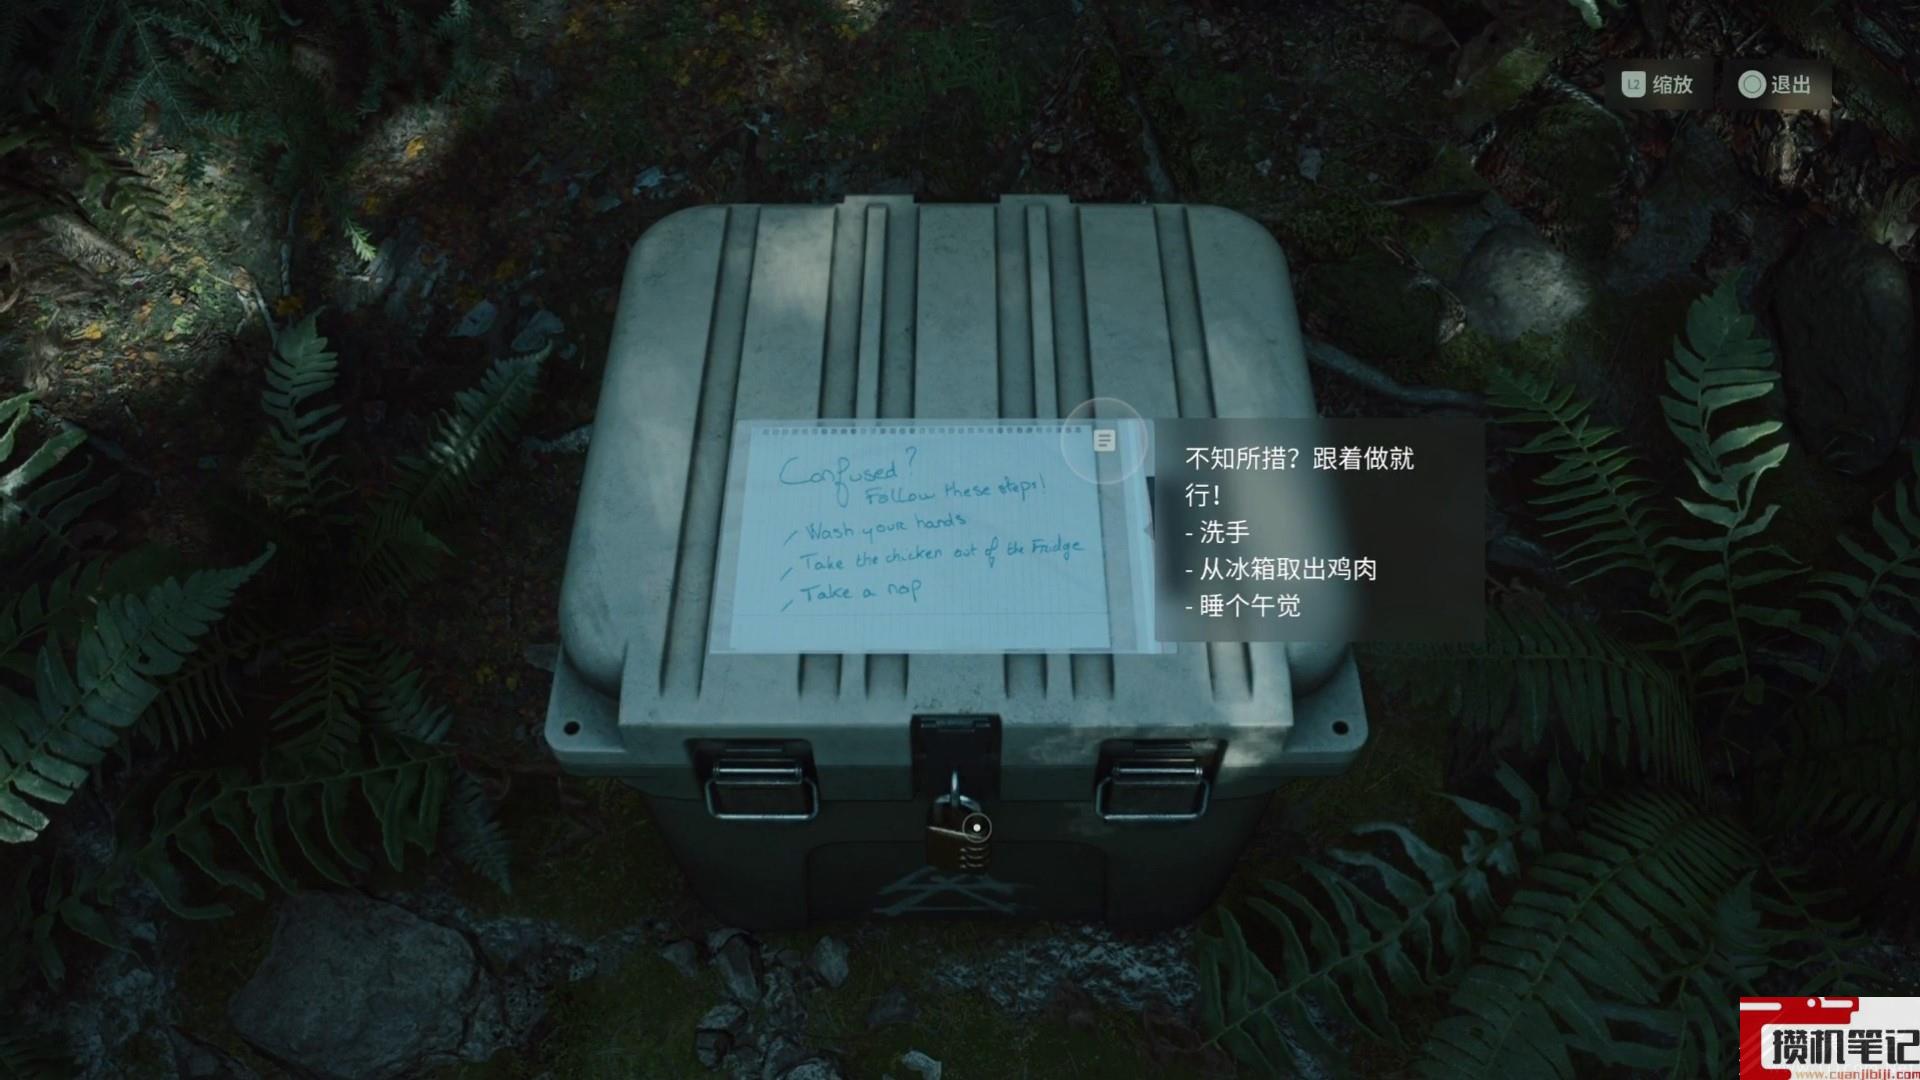 L2 缩放
退出
Confused?
Follow these steps!
Wash your hands
Take the chicken out of the Fridge
Take a nap
不知所措？跟着做就
行！
- 洗手
- 从冰箱取出鸡肉
- 睡个午觉
攒机笔记
www.cuanjibiji.com